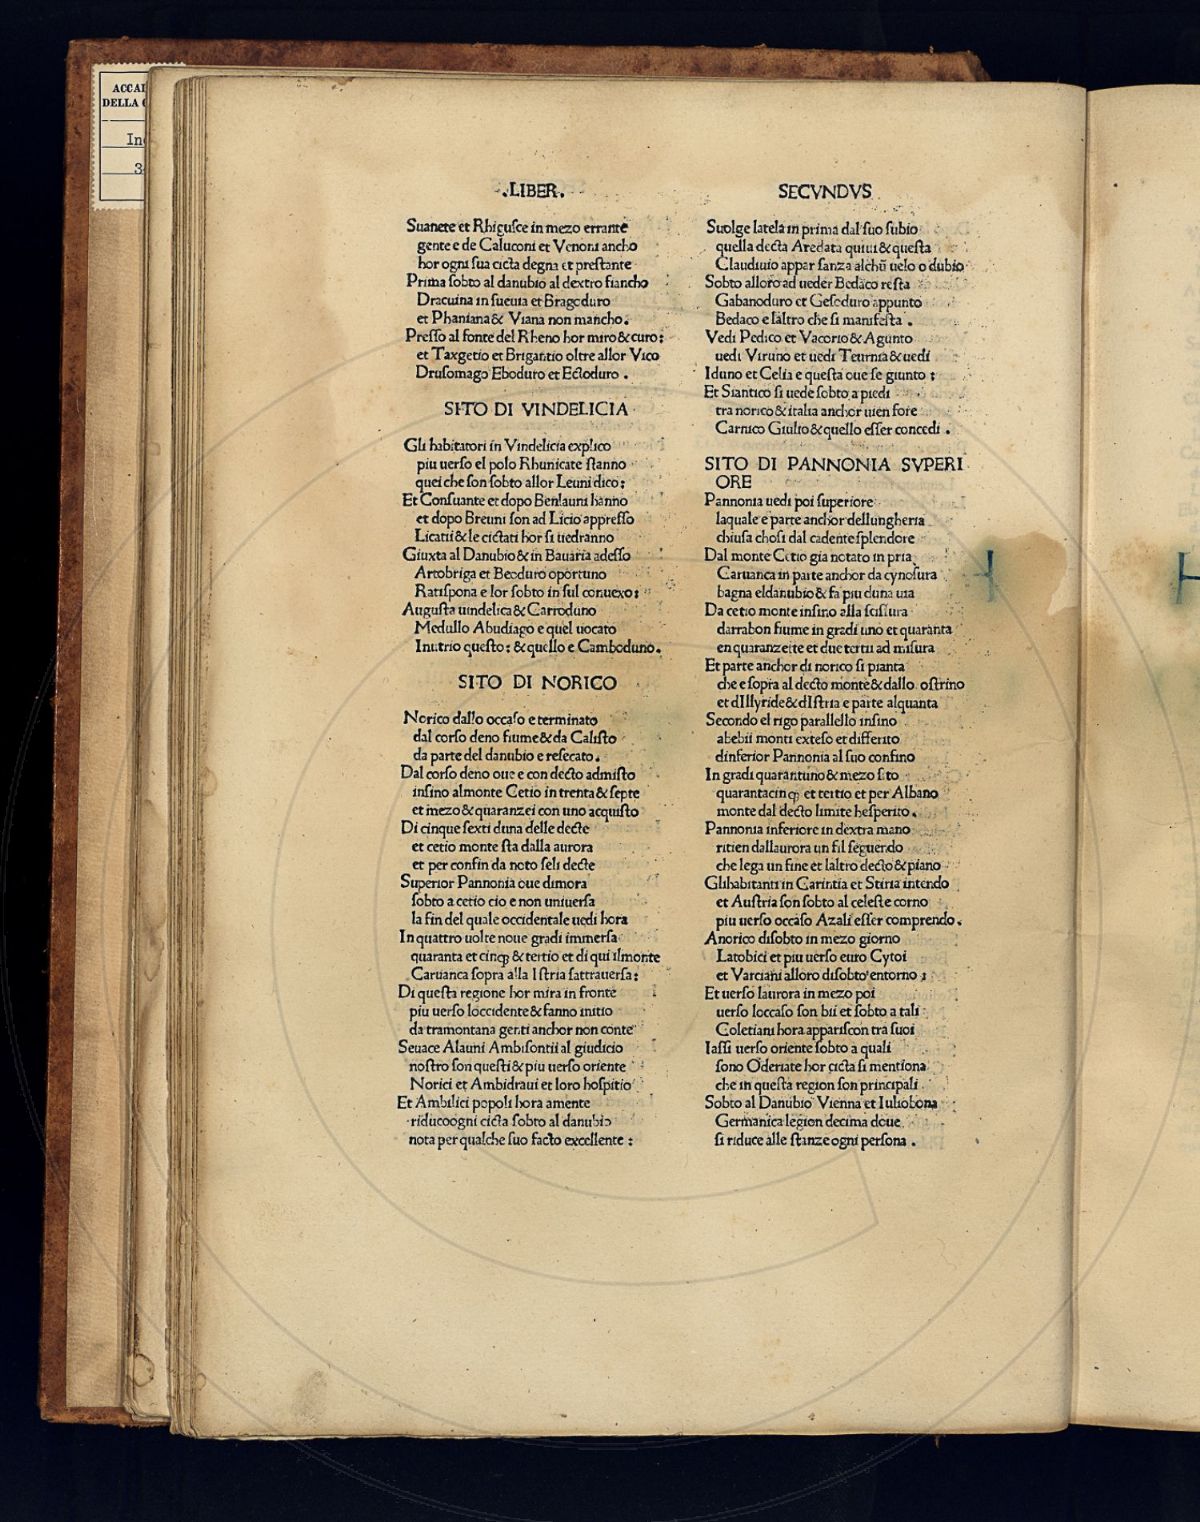 ACCAD
DELLA C
In
3
.LIBER.
Suanete et Rhiguſce in mezo errante
gente e de Caluconi et Venoni ancho
hor ogni ſua cicta degna et preſtante
Prima ſobto al danubio al dextro fiancho
Dracuina in ſueuia et Bragoduro
et Phaniana & Viana non mancho.
Preſſo al fonte del Rheno hor miro & curo:
et Taxgetio et Brigantio oltre allor Vico
Druſomago Eboduro et Ectoduro .
SITO DI VINDELICIA
Gli habitatori in Vindelicia explico
piu uerſo el polo Rhunicate ſtanno
quei che ſon ſobto allor Leuni dico:
Et Conſuante et dopo Benlauni hanno
et dopo Breuni ſon ad Licio appreſſo
Licatii & le cictati hor ſi uedranno
Giuxta al Danubio & in Bauaria adeſſo
Artobriga et Beoduro oportuno
Ratiſpona e lor ſobto in ſul conuexo:
Auguſta uindelica & Carroduno
Medullo Abudiago e quel uocato
Inutrio queſto: & quello e Camboduno.
SITO DI NORICO
Norico dallo occaſo e terminato
dal corſo deno fiume & da Caliſto
da parte del danubio e reſecato.
Dal corſo deno oue e con decto admiſto
inſino almonte Cetio in trenta & ſepte
et mezo & quaranzei con uno acquiſto
Di cinque ſexti duna delle decte
et cetio monte ſta dalla aurora
et per confin da noto ſeli decte
Superior Pannonia oue dimora
ſobto a cetio cio e non uniuerſa
la fin del quale occidentale uedi hora
In quattro uolte noue gradi immerſa
quaranta et cinqꝫ & tertio et di qui ilmonte
Caruanca ſopra alla Iſtria ſattrauerſa:
Di queſta regione hor mira in fronte
piu uerſo loccidente & fanno initio
da tramontana genti anchor non conte
Seuace Alauni Ambiſontii al giudicio
noſtro ſon queſti & piu uerſo oriente
Norici et Ambidraui et loro hoſpitio
Et Ambilici popoli hora amente
riducoogni cicta ſobto al danubio
nota per qualche ſuo facto excellente :
SECVNDVS
Suolge latela in prima dal ſuo ſubio
quella decta Aredata quiui & queſta
Claudiuio appar ſanza alchũ uelo o dubio
Sobto alloro ad ueder Bedaco reſta
Gabanoduro et Geſoduro appunto
Bedaco e laltro che ſi manifeſta .
Vedi Pedico et Vacorio & Agunto
uedi Viruno et uedi Teurnia & uedi
Iduno et Celia e queſta oue ſe giunto :
Et Siantico ſi uede ſobto a piedi
tra norico & italia anchor uien fore
Carnico Giulio & quello eſſer concedi .
SITO DI PANNONIA SVPERI
ORE
Pannonia uedi poi ſuperiore
laquale e parte anchor dellungheria
chiuſa choſi dal cadente ſplendore
Dal monte Cetio gia notato in pria
Caruanca in parte anchor da cynoſura
bagna eldanubio & fa piu duna uia
Da cetio monte inſino alla ſciſſura
darrabon fiume in gradi uno et quaranta
en quaranzette et due tertii ad miſura
Et parte anchor di norico ſi pianta
che e ſopra al decto monte & dallo oſtrino
et dIllyride & dIſtria e parte alquanta
Secondo el rigo parallello inſino
abebii monti exteſo et differito
dinferior Pannonia al ſuo confino
In gradi quarantuno & mezo ſito
quarantacinqꝫ et tertio et per Albano
monte dal decto limite heſperito.
Pannonia inferiore in dextra mano
ritien dallaurora un fil ſeguendo
che lega un fine et laltro decto & piano
Glihabitanti in Carintia et Stiria intendo
et Auſtria ſon ſobto al celeſte corno
piu uerſo occaſo Azali eſſer comprendo.
Anorico diſobto in mezo giorno
Latobici et piu uerſo euro Cytoi
et Varciani alloro diſobto entorno :
Et uerſo laurora in mezo poi
uerſo loccaſo ſon bii et ſobto a tali
Coletiani hora appariſcon tra ſuoi
Iaſſi uerſo oriente ſobto a quali
ſono Oderiate hor cicta ſi mentiona
che in queſta region ſon principali
Sobto al Danubio Vienna et Iuliobona
Germanica legion decima doue
ſi riduce alle ſtanze ogni perſona .